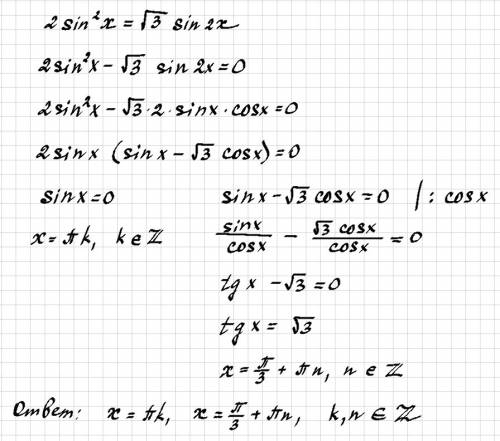 2 sin²x = √3 sin 2x
2 sin²x − √3 sin 2x = 0
2 sin²x − √3 · 2 · sinx · cosx = 0
2 sinx (sinx − √3 cosx) = 0
sinx = 0
x = πk, k ∈ ℤ
sinx − √3 cosx = 0 | : cosx
sinx/cosx − √3 cosx/cosx = 0
tg x − √3 = 0
tg x = √3
x = π/3 + πn, n ∈ ℤ
Ответ: x = πk, x = π/3 + πn, k, n ∈ ℤ